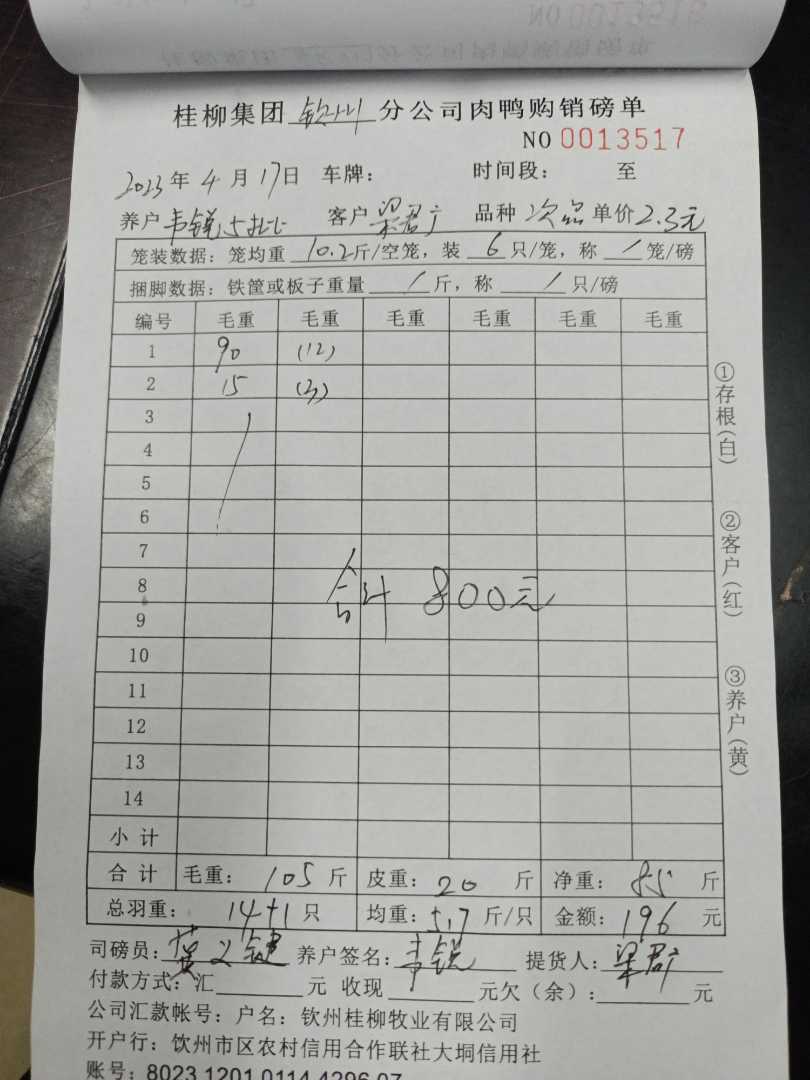 桂柳集团 钦州 分公司肉鸭购销磅单
NO 0013517
2023年4月17日 车牌： 时间段： 至
养户 韦锐5批 客户 梁君广 品种 次品 单价2.3元
笼装数据：笼均重 10.2斤/空笼，装 6 只/笼，称 / 笼/磅
捆脚数据：铁筐或板子重量 / 斤，称 / 只/磅
编号 毛重 毛重 毛重 毛重 毛重 毛重
1 90 (12)
2 15 (3)
3
4
5
6
7
8
9
合计 800元
10
11
12
13
14
小计
合计 毛重：105斤 皮重：20斤 净重：85斤
总羽重：14+1只 均重：5.7斤/只 金额：196元
司磅员： 养户签名：韦锐 提货人：梁君广
付款方式：汇 元 收现 元欠（余）： 元
公司汇款帐号：户名：钦州桂柳牧业有限公司
开户行：钦州市区农村信用合作联社大垌信用社
账号：8023 1201 0114 4296 07
①存根（白）
②客户（红）
③养户（黄）